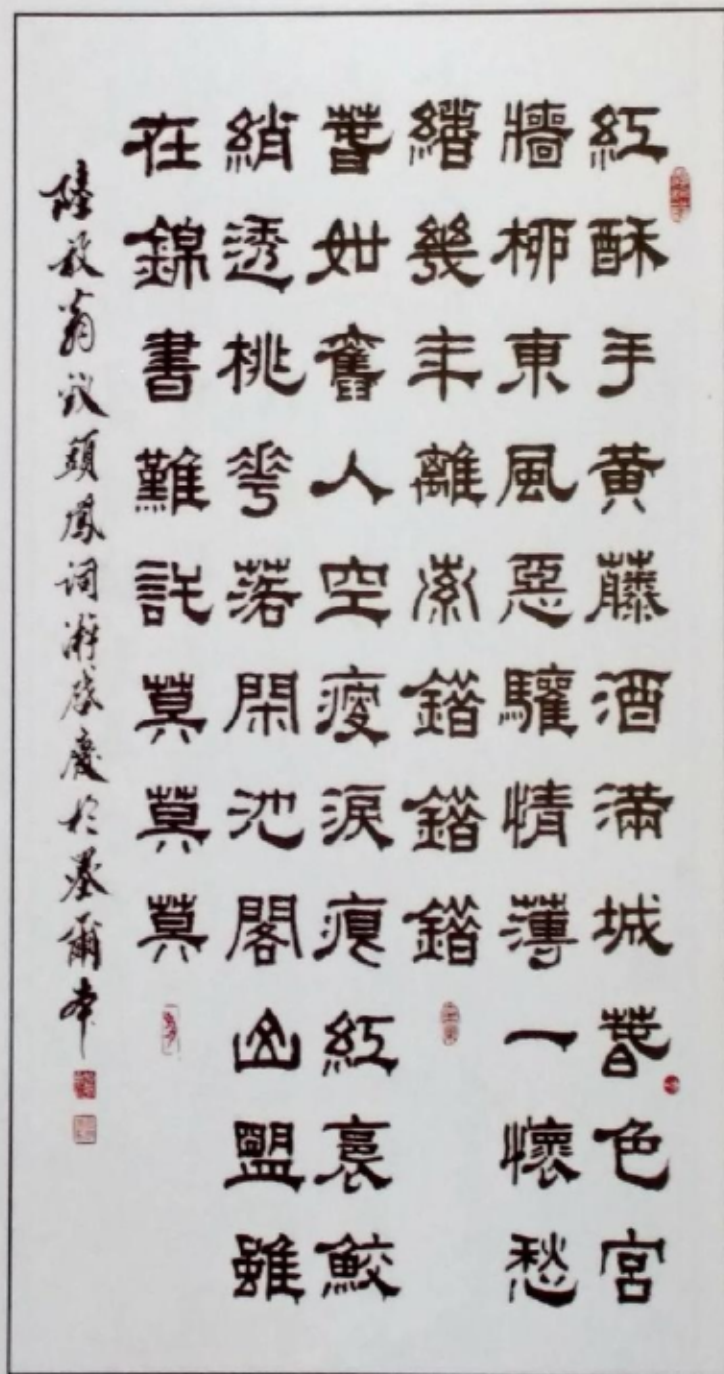 紅酥手黃藤酒滿城春色宮
牆柳東風惡驩情薄一懷愁
緒幾年離索錯錯錯
春如舊人空瘦淚痕紅裛鮫
綃透桃花落閑池閣山盟雖
在錦書難託莫莫莫
陸放翁釵頭鳳詞游啟慶於墨爾本